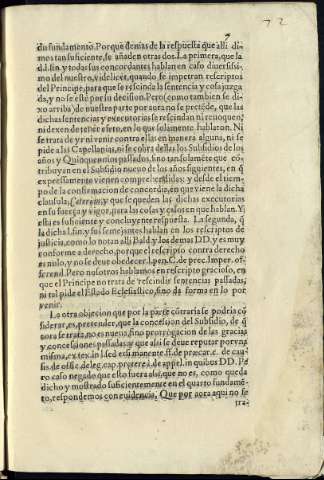 72
7
dis fundamento. Porque demas de la respuesta que alli di-
mos tan suficiente, se añaden otras dos. La primera, que la
d.l.fin. y todas sus concordantes hablan en caso diuersissi-
mo del nuestro, videlicet, quando se impetran rescriptos
del Principe, para que se rescinda la sentencia y cosa juzga
da, y no se esté por su decision. Pero (como tambien se di-
xo arriba) de nuestra parte por aora no se pretẽde, que las
dichas sentencias y executorias se rescindan ni reuoquen;
ni dexen de tener efeto, en lo que solamente hablaron. Ni
se trata de yr ni venir contra ellas en manera alguna, ni se
pide a las Capellanias, ni se cobra dellas los Subsidios de los
años y Quinquenios passados, sino tan solamẽte que cõ-
tribuyan en el Subsidio nueuo de los años siguientes, en q̃
expressamente vienen comprehendidas: y desde el tiem-
po de la confirmacion de concordia, en que viene la dicha
clausula, Cæterùm, y que se queden las dichas executorias
en su fuerça y vigor, para las cosas y casos en que hablan. Y
esta es suficiente y concluyente respuesta. La segunda, q̃
la dicha l.fin. y sus semejantes hablan en los rescriptos de
justicia, como lo notan alli Bald. y los demas DD. y es muy
conforme a derecho, porque el rescripto contra derecho
es nulo, y no se deue obedecer l.pen. C. de prec. Imper. of-
ferend. Pero nosotros hablamos en rescripto gracioso, en
que el Principe no trata de rescindir sentencias passadas,
ni tal pide el Estado Eclesiastico, sino da forma en lo por
venir.
La otra objecion que por la parte cõtraria se podria cõ
siderar, es, pretender, que la concession del Subsidio, de q̃
aora se trata, no es nueua, sino prorrogacion de las gracias
y concessiones passadas: y que assi se deue reputar por vna
misma, ex tex. in l. sed etsi manente. ff. de præcar. c. de cau-
sis. de offic. deleg. cap. præterea. de appel. in quibus DD. Pe
ro caso negado que esto fuera assi, que no es, como queda
dicho y mostrado suficientemente en el quarto fundamẽ-
to, respondemos con euidencia. Que por aora aqui no se
tra-